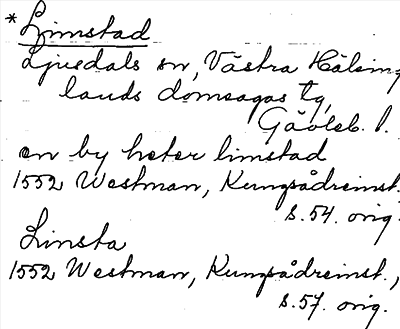 * Limstad
Ljusdals sn, Västra Hälsing
lands domsagas tg,
Gävleb. l.
en by heter limstad
1552 Westman, Kungsådreinst.
s. 54. orig.
Linsta
1552 Westman, Kungsådreinst.,
s. 57. orig.